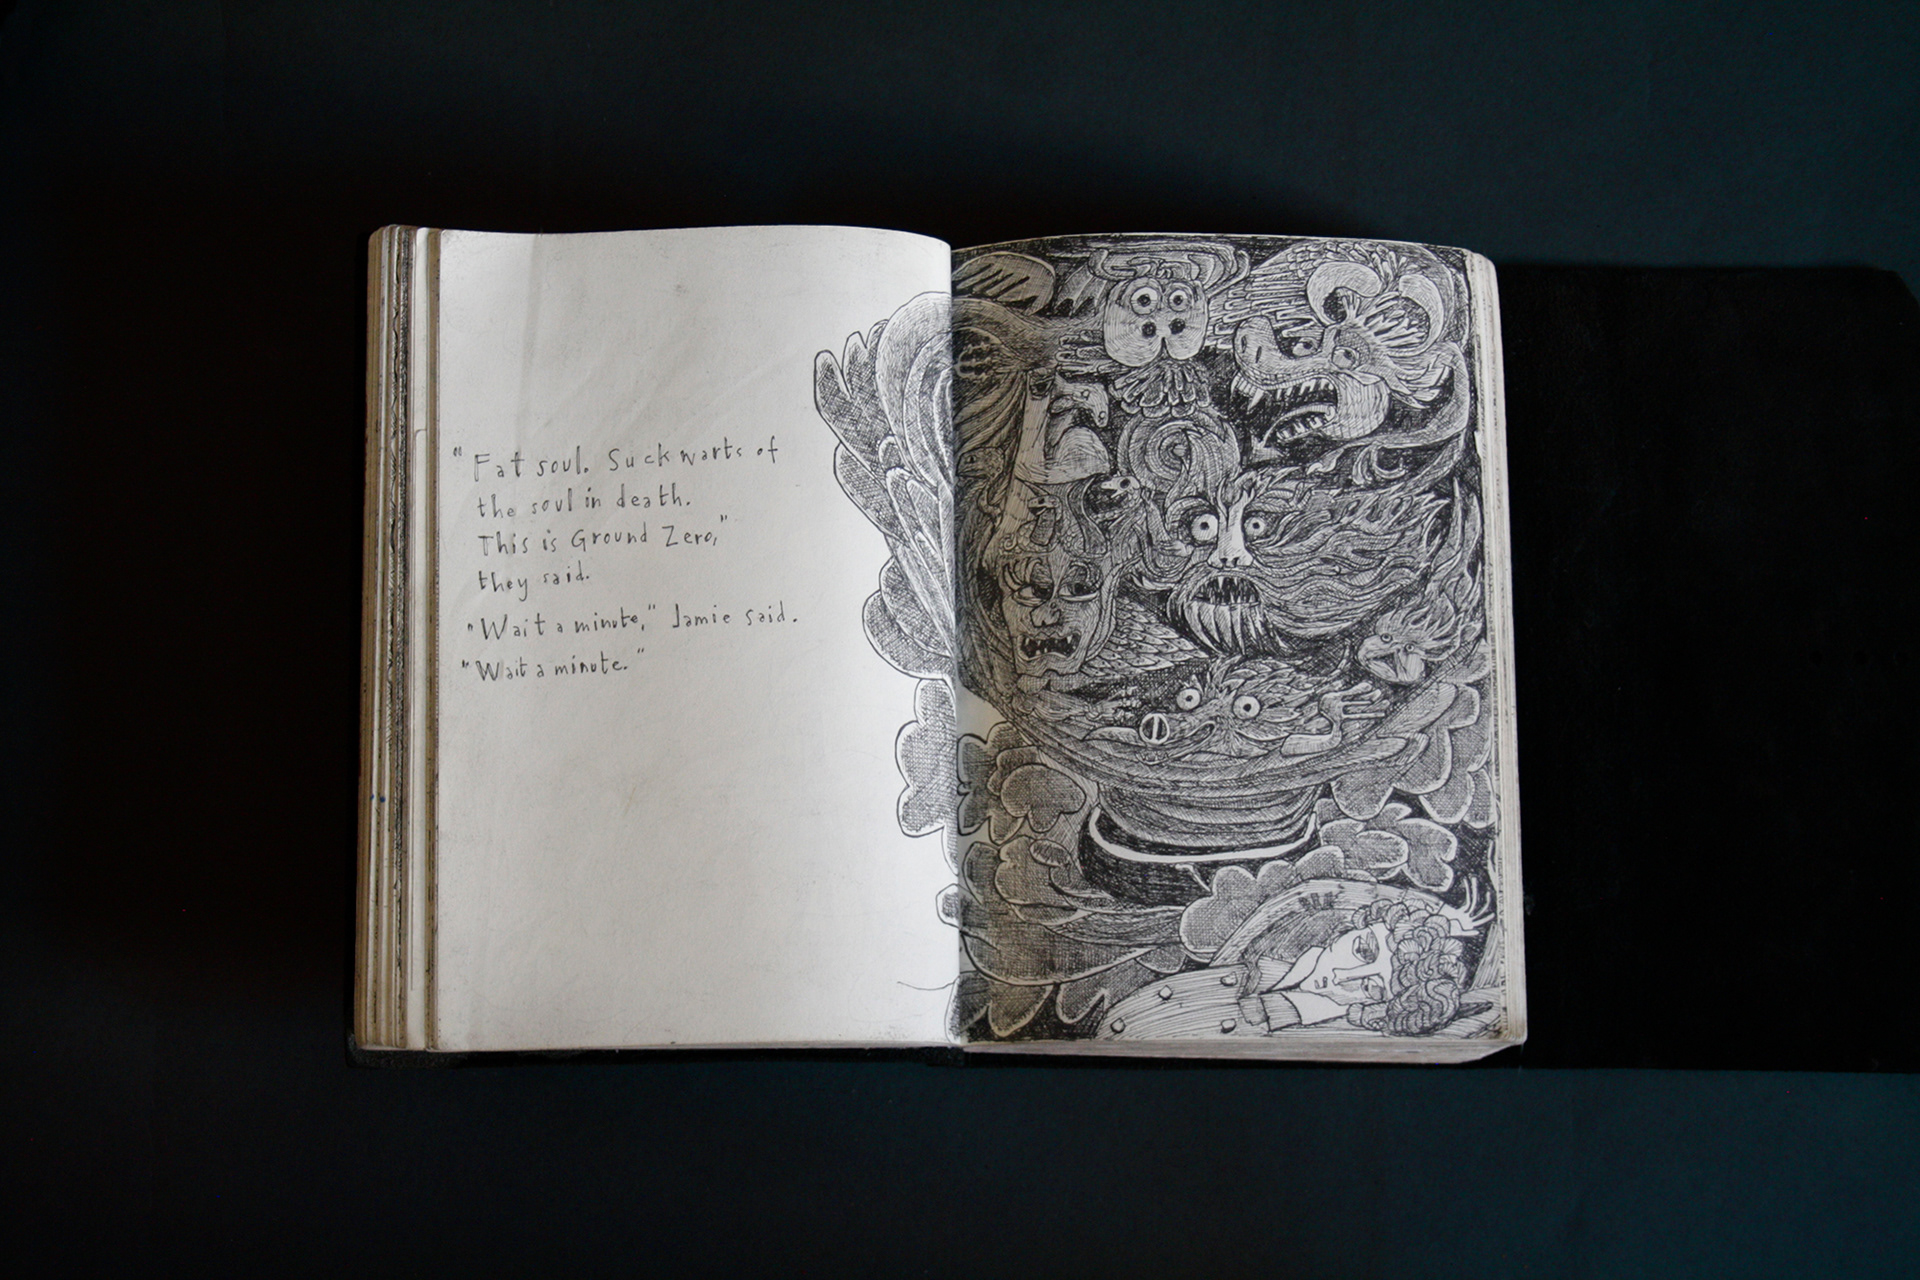 "Fat soul. Suck warts of
the soul in death.
This is Ground Zero,"
they said.
"Wait a minute," Jamie said.
"Wait a minute."